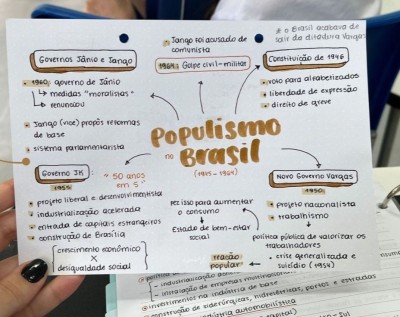 Governos Jânio e Jango
1960: governo de Jânio
↳ medidas "moralistas"
↳ renunciou
Jango (vice) propôs reformas
de base
sistema parlamentarista
Jango foi acusado de
comunista
1964: Golpe civil-militar
* o Brasil acabava de
sair da ditadura Vargas
Constituição de 1946
voto para alfabetizados
liberdade de expressão
direito de greve
Populismo
no Brasil
(1945 - 1964)
Governo JK:
1955
"50 anos
em 5"
projeto liberal e desenvolvimentista
industrialização acelerada
entrada de capitais estrangeiros
construção de Brasília
crescimento econômico
X
desigualdade social
Novo Governo Vargas
1950:
projeto nacionalista
trabalhismo
política pública de valorizar os
trabalhadores
fez isso para aumentar
o consumo
Estado de bem-estar
social
crise generalizada e
suicídio (1954)
reação
popular
política
- industrialização
- instalação de empresas multinacionais
investimentos na indústria de base
construção de siderúrgicas, hidrelétricas, portos e estradas
indústria automobilística